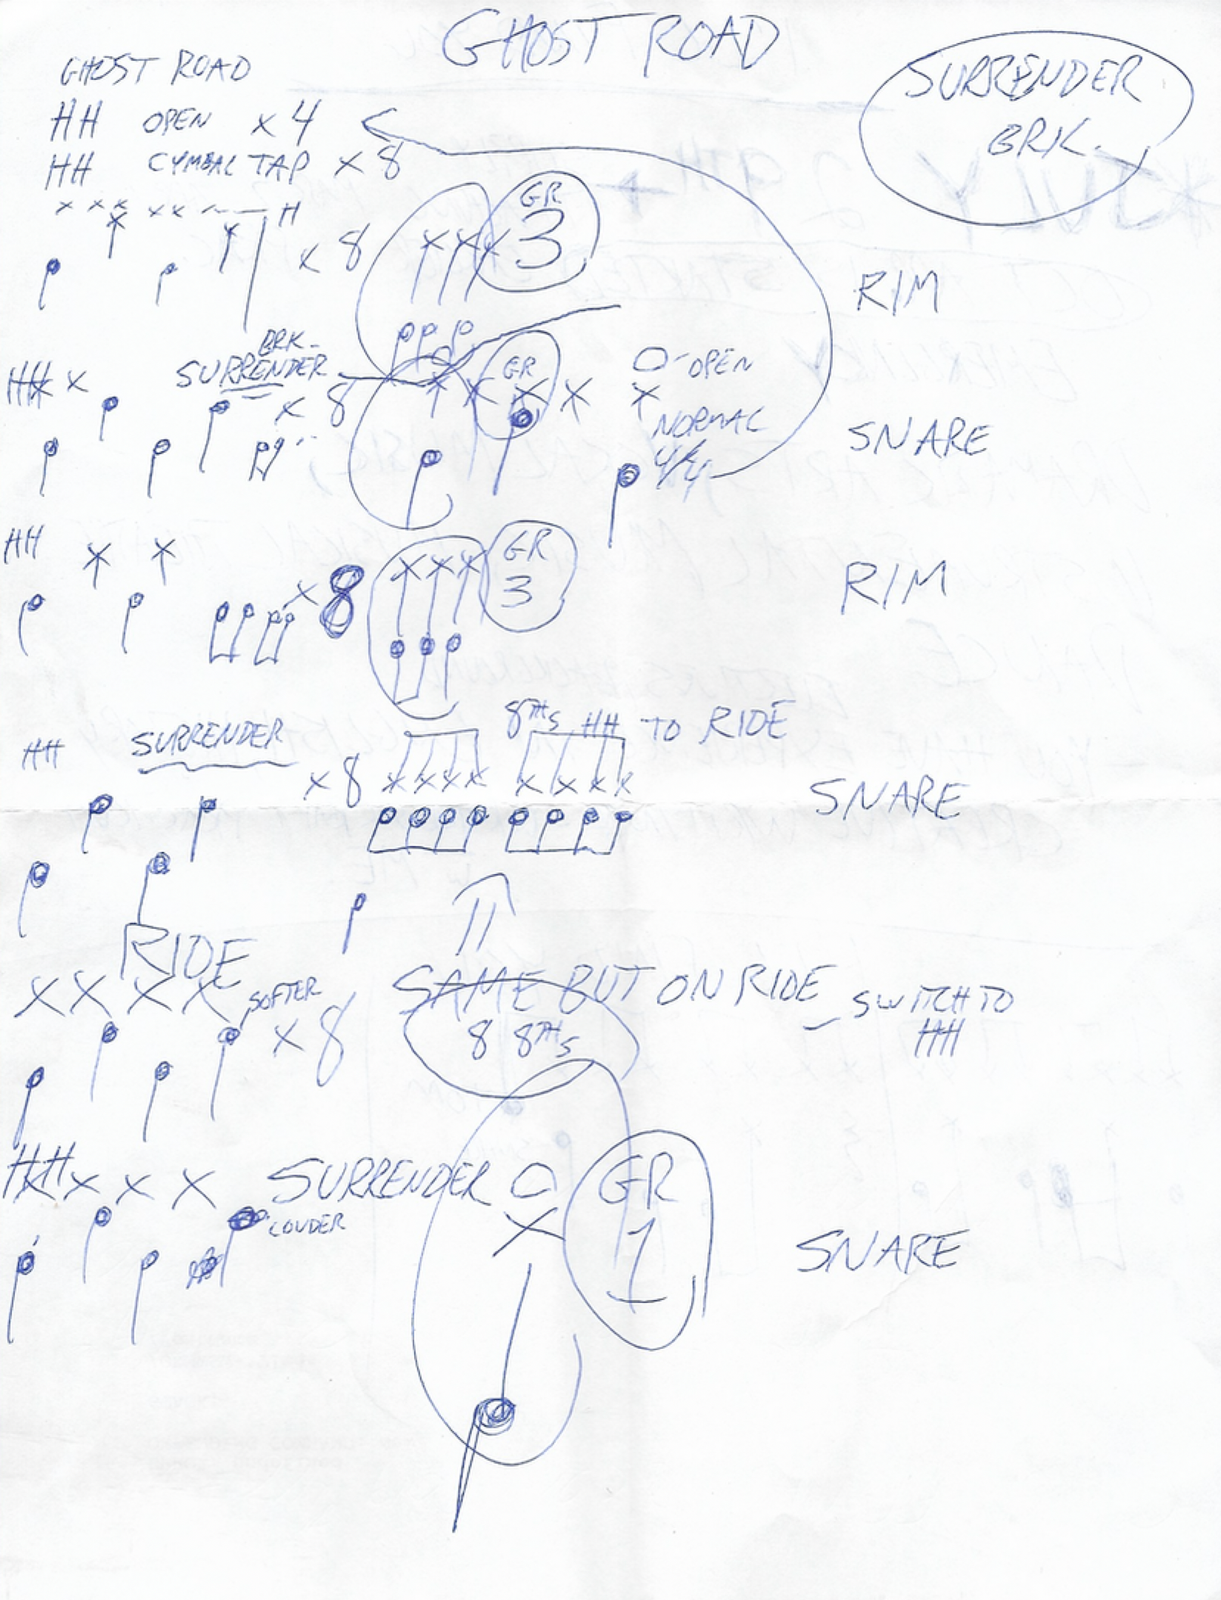 GHOST ROAD
SURRENDER
BRK.
GHOST ROAD
HH OPEN x 4
HH CYMBAL TAP x 8
H
x 8
GR
3
RIM
BRK-
HH x SURRENDER x 8
GR
O-OPEN
NORMAL
4/4
SNARE
HH
x 8
GR
3
RIM
HH SURRENDER x 8
8THS HH TO RIDE
SNARE
RIDE
XXXX SOFTER x 8
SAME BUT ON RIDE - SWITCH TO
HH
8 8THS
HH x x x SURRENDER O
LOUDER
X
GR
1
SNARE